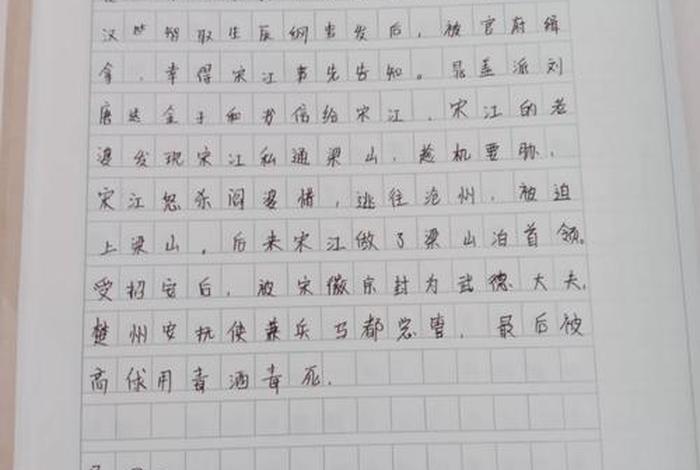 汉等智取生辰纲事发后，被官府缉
拿，幸得宋江事先告知。晁盖派刘
唐送金子和书信给宋江，宋江的老
婆发现宋江私通梁山，趁机要胁，
宋江怒杀阎婆惜，逃往沧州，被迫
上梁山。后来宋江做了梁山泊首领。
受招安后，被宋徽宗封为武德大夫，
楚州安抚使兼兵马都总管，最后被
高俅用毒酒毒死。